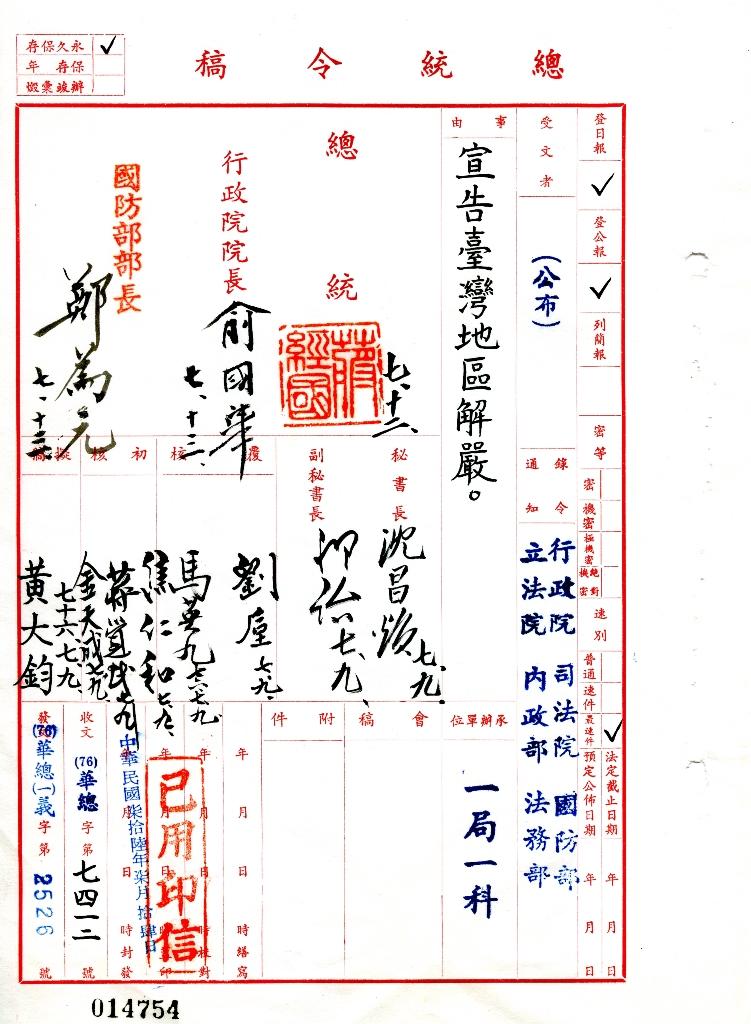 總統令稿
永久保存
保存 年
辦竣彙燬
登日報
登公報
列簡報
密等
密
機密
極機密
絕對機密
速別
普通
速件
最速件
法定截止日期 年 月 日
預定公佈日期 年 月 日
受文者
(公布)
錄令通知
行政院 司法院 國防部
立法院 內政部 法務部
事由
宣告臺灣地區解嚴。
承辦單位
一局一科
總統
蔣經國
七、十三、
行政院院長
俞國華
七、十三、
國防部部長
鄭為元
七、十三、
秘書長
沈昌煥
七、九、
副秘書長
七、九、
覆核
劉垕
七、九、
馬英九
七六、七、九
初核
焦仁和
七、九、
擬稿
金天成
黃大鈞
七十六、七、九、
會稿
附件
年 月 日 時繕寫
年 月 日 時校對
年 月 日 時蓋印
年 月 日 時封發
已用印信
中華民國柒拾陸年柒月拾肆日
收文 (76)華總 字第 七四一二 號
發文 (76)華總(一)義 字第 2526 號
014754